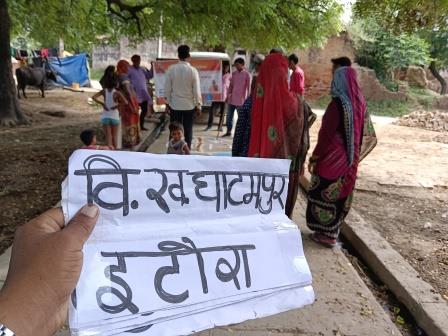 वि.ख.घाटमपुर
इटौरा